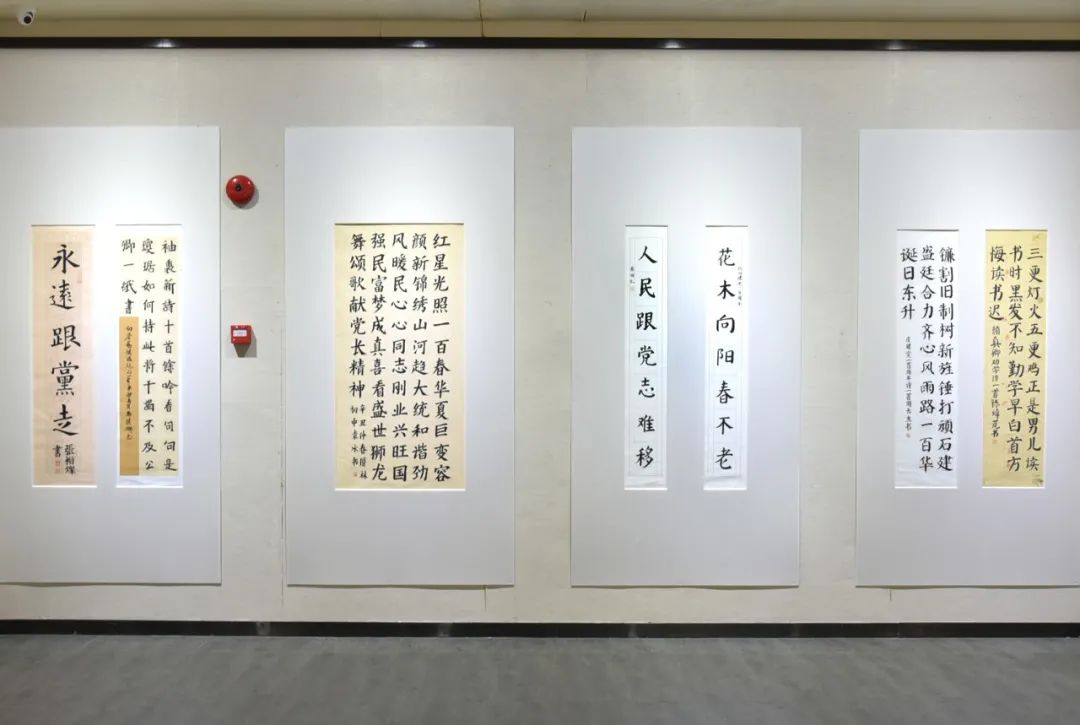 永遠跟黨走
張栢燦
書
袖裏新詩十首餘吟看句句是
瓊琚如何持此将干謁不及公
卿一紙書
红星光照一百春华夏巨变容
颜新锦绣山河趋大统和谐劲
风暖民心心同志刚业兴旺国
强民富梦成真喜看盛世狮龙
舞颂歌献党长精神
辛丑仲春
花木向阳春不老
人民跟党志难移
镰割旧制树新旌锤打顽石建
盛廷合力齐心风雨路一百华
诞日东升
三更灯火五更鸡正是男儿读
书时黑发不知勤学早白首方
悔读书迟
颜真卿劝学诗一首